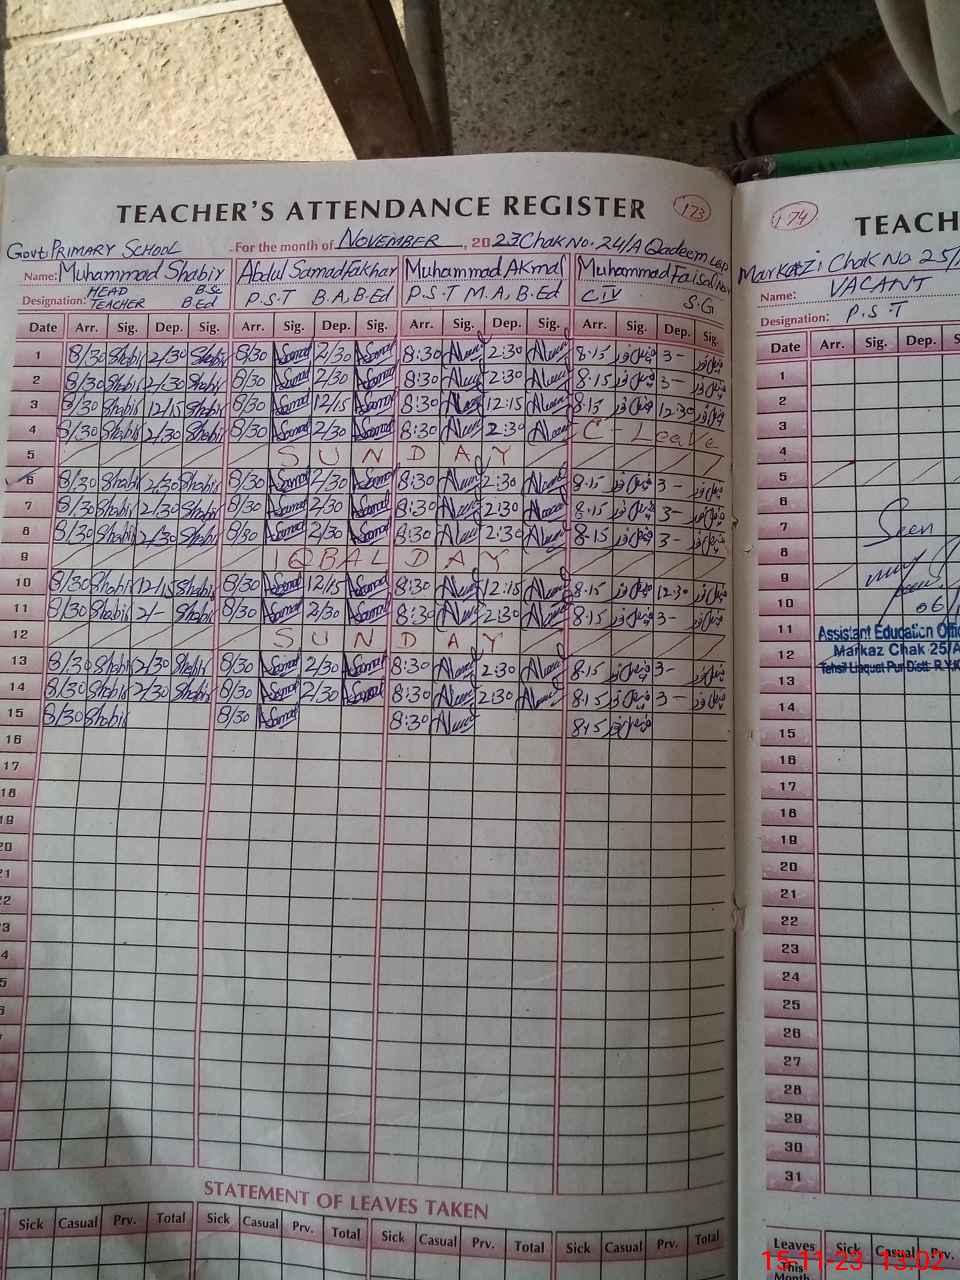 TEACHER'S ATTENDANCE REGISTER
173
Govt. PRIMARY SCHOOL - For the month of NOVEMBER, 2023 Chak No. 24/A Qadeem LQP
Name: Muhammad Shabir Abdul Samad Fakhar Muhammad Akmal Muhammad Faisal
Designation: HEAD TEACHER B.Sc B.Ed P.S.T B.A, B.Ed P.S.T M.A, B.Ed C.IV S.G
Date Arr. Sig. Dep. Sig. Arr. Sig. Dep. Sig. Arr. Sig. Dep. Sig. Arr. Sig. Dep. Sig.
1 8/30 Shabir 2/30 Shabir 8/30 Samad 2/30 Samad 8:30 2:30 8.15 3-
2 8/30 Shabir 2/30 Shabir 8/30 Samad 2/30 Samad 8:30 2:30 8.15 3-
3 8/30 Shabir 12/15 Shabir 8/30 Samad 12/15 Samad 8:30 12:15 8.15 12.30
4 8/30 Shabir 2/30 Shabir 8/30 Samad 2/30 Samad 8:30 2:30 C-Leave
5 SUNDAY
6 8/30 Shabir 2/30 Shabir 8/30 Samad 2/30 Samad 8:30 2:30 8.15 3-
7 8/30 Shabir 2/30 Shabir 8/30 Samad 2/30 Samad 8:30 2:30 8.15 3-
8 8/30 Shabir 2/30 Shabir 8/30 Samad 2/30 Samad 8:30 2:30 8.15 3-
9 IQBAL DAY
10 8/30 Shabir 12/15 Shabir 8/30 Samad 12/15 Samad 8:30 12:15 8.15 12.30
11 8/30 Shabir 2/- Shabir 8/30 Samad 2/30 Samad 8:30 2:30 8.15 3-
12 SUNDAY
13 8/30 Shabir 2/30 Shabir 8/30 Samad 2/30 Samad 8:30 2:30 8.15 3-
14 8/30 Shabir 2/30 Shabir 8/30 Samad 2/30 Samad 8:30 2:30 8.15 3-
15 8/30 Shabir 8/30 Samad 8:30 8.15
16
17
18
19
20
21
22
3
4
5
STATEMENT OF LEAVES TAKEN
Sick Casual Prv. Total Sick Casual Prv. Total Sick Casual Prv. Total Sick Casual Prv. Total
174
TEACH
Markazi Chak No 25/
Name: VACANT
Designation: P.S.T
Date Arr. Sig. Dep. S
1
2
3
4
5
6
7
8
9
10
11
12
13
14
15
16
17
18
19
20
21
22
23
24
25
26
27
28
29
30
31
Seen
06/
Assistant Education Offi
Markaz Chak 25/A
Tehsil Liaquat Pur Distt: R.Y.K
Leaves This Month Sick Casual Prv.
15-11-23 13:02